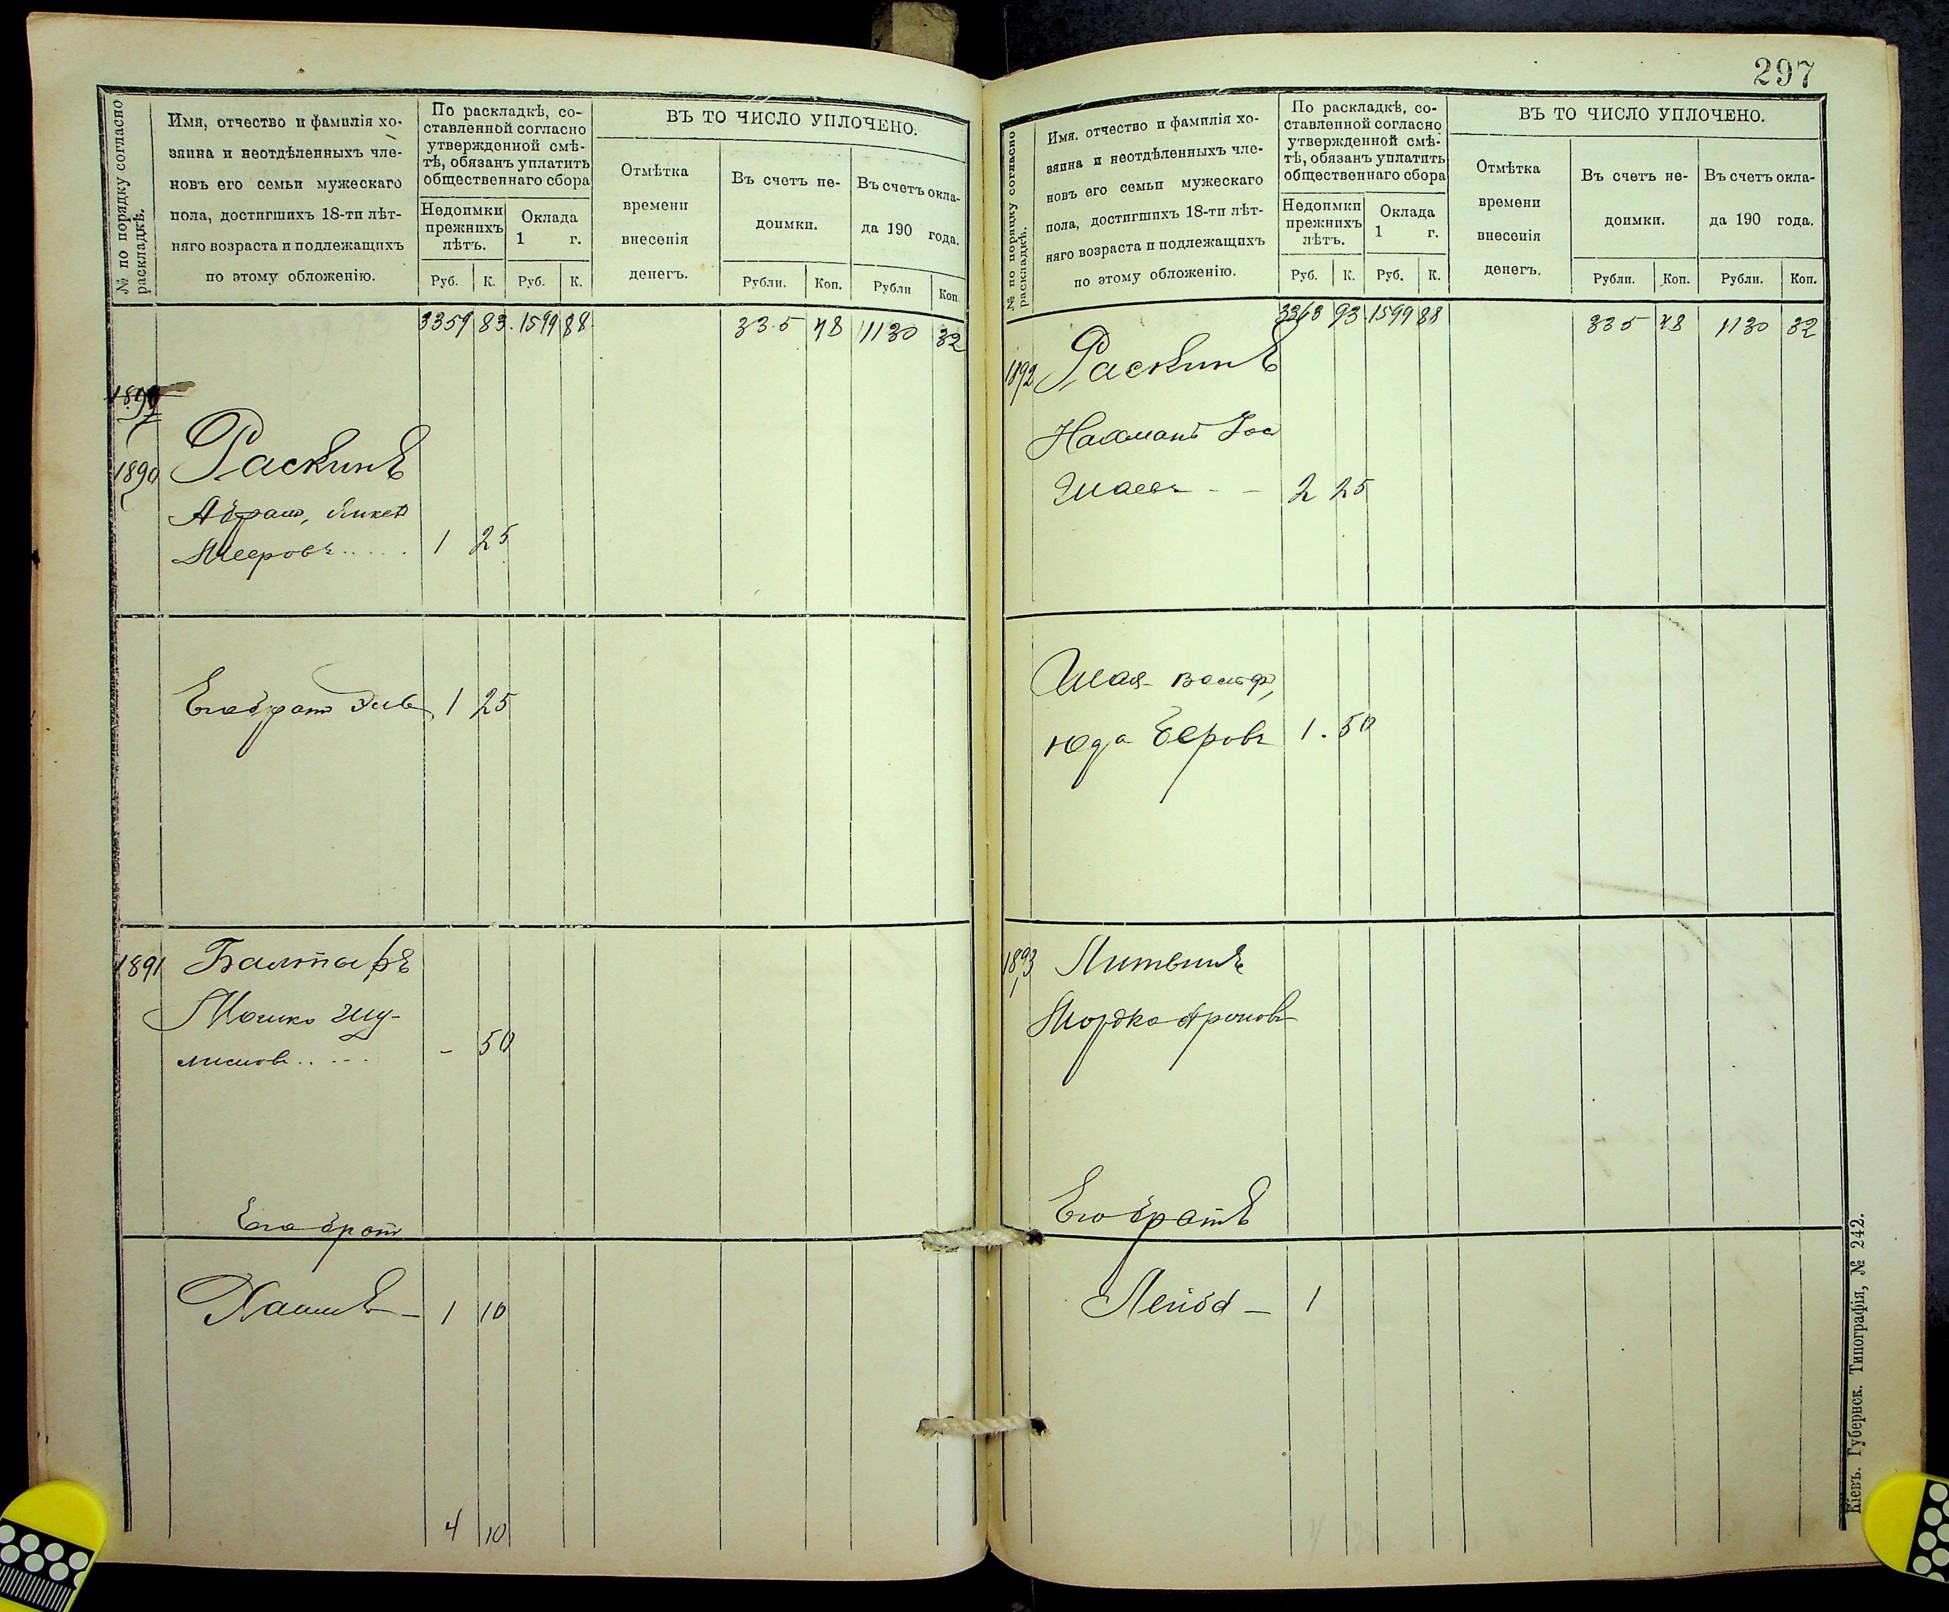 297
№ по порядку согласно
раскладкѣ.
Имя, отчество и фамилія хо-
зяина и неотдѣленныхъ чле-
новъ его семьи мужескаго
пола, достигшихъ 18-ти лѣт-
няго возраста и подлежащихъ
по этому обложенію.
По раскладкѣ, со-
ставленной согласно
утвержденной смѣ-
тѣ, обязанъ уплатить
общественнаго сбора
Недоимки
прежнихъ
лѣтъ.
Оклада
1 г.
Руб. К. Руб. К.
ВЪ ТО ЧИСЛО УПЛОЧЕНО.
Отмѣтка
времени
внесенія
денегъ.
Въ счетъ не-
доимки.
Въ счетъ окла-
да 190 года.
Рубли. Коп. Рубли Коп.
3359 83 1599 88 335 48 1130 32
1890 Раскинъ
Абрам,
Мееровъ 1 25
Его братъ 1 25
1891 Балтыръ
Мошко Шу-
лимовъ - 50
Его братъ
Хаимъ — 1 10
4 10
№ по порядку согласно
раскладкѣ.
Имя, отчество и фамилія хо-
зяина и неотдѣленныхъ чле-
новъ его семьи мужескаго
пола, достигшихъ 18-ти лѣт-
няго возраста и подлежащихъ
по этому обложенію.
По раскладкѣ, со-
ставленной согласно
утвержденной смѣ-
тѣ, обязанъ уплатить
общественнаго сбора
Недоимки
прежнихъ
лѣтъ.
Оклада
1 г.
Руб. К. Руб. К.
ВЪ ТО ЧИСЛО УПЛОЧЕНО.
Отмѣтка
времени
внесенія
денегъ.
Въ счетъ не-
доимки.
Въ счетъ окла-
да 190 года.
Рубли. Коп. Рубли. Коп.
3363 93 1599 88 335 48 1130 32
1892 Раскинъ
Нахманъ
2 25
Шая-
Юда Беровъ 1. 50
1893 Литвинъ
Мордко Ароновъ
Его братъ
Лейба — 1
Кіевъ. Губернск. Типографія, № 242.